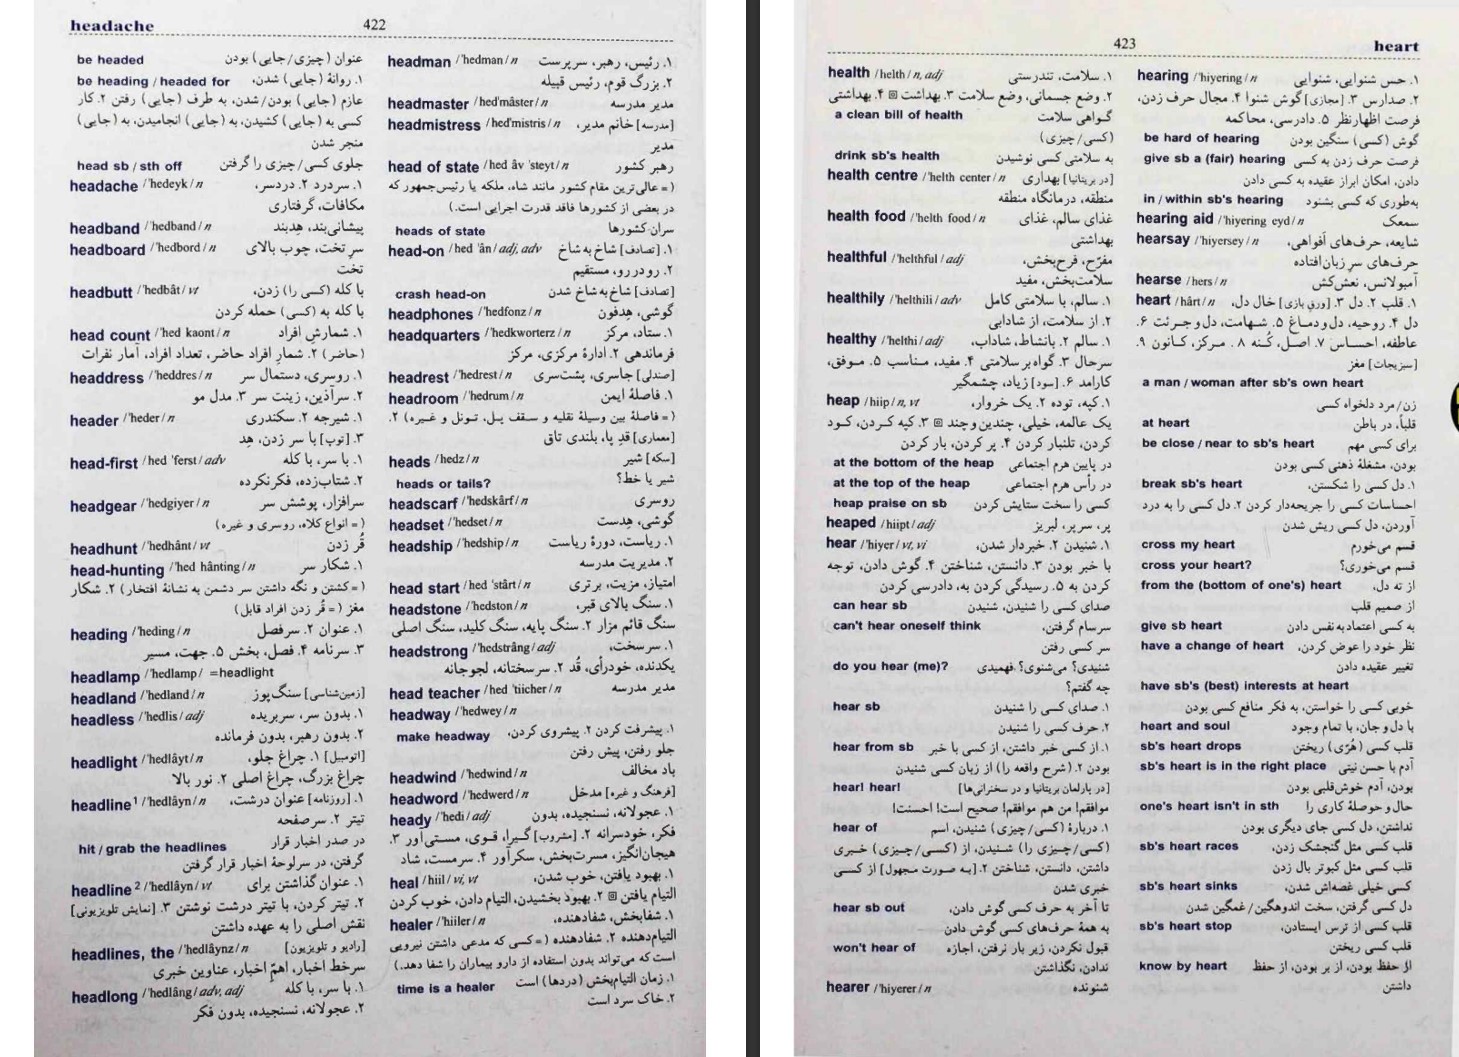 headache
422
be headed عنوان (چیزی/جایی) بودن
be heading / headed for ۱. روانهٔ (جایی) شدن،
عازم (جایی) بودن/شدن، به طرف (جایی) رفتن ۲. کار
کسی به (جایی) کشیدن، به (جایی) انجامیدن، به (جایی)
منجر شدن
head sb / sth off جلوی کسی/چیزی را گرفتن
headache /'hedeyk/ n ۱. سردرد ۲. دردسر،
مکافات، گرفتاری
headband /'hedband/ n پیشانی‌بند، هِدبند
headboard /'hedbord/ n سرِ تخت، چوب بالای
تخت
headbutt /'hedbât/ vt با کله (کسی را) زدن،
با کله به (کسی) حمله کردن
head count /'hed kaont/ n ۱. شمارشِ افراد
(حاضر) ۲. شمار افراد حاضر، تعداد افراد، آمار نفرات
headdress /'heddres/ n ۱. روسری، دستمال سر
۲. سرآذین، زینت سر ۳. مدل مو
header /'heder/ n ۱. شیرجه ۲. سکندری
۳. [توپ] با سر زدن، هِد
head-first /hed 'ferst/ adv ۱. با سر، با کله
۲. شتاب‌زده، فکرنکرده
headgear /'hedgiyer/ n سرافزار، پوشش سر
(= انواع کلاه، روسری و غیره)
headhunt /'hedhânt/ vt قُر زدن
head-hunting /'hed hânting/ n ۱. شکار سر
(= کشتن و نگه داشتن سر دشمن به نشانهٔ افتخار) ۲. شکار
مغز (= قُر زدن افراد قابل)
heading /'heding/ n ۱. عنوان ۲. سرفصل
۳. سرنامه ۴. فصل، بخش ۵. جهت، مسیر
headlamp /'hedlamp/ =headlight
headland /'hedland/ n [زمین‌شناسی] سنگ‌پوز
headless /'hedlis/ adj ۱. بدون سر، سربریده
۲. بدون رهبر، بدون فرمانده
headlight /'hedlâyt/ n [اتومبیل] ۱. چراغ جلو،
چراغ بزرگ، چراغ اصلی ۲. نور بالا
headline¹ /'hedlâyn/ n ۱. [روزنامه] عنوان درشت،
تیتر ۲. سرصفحه
hit / grab the headlines در صدر اخبار قرار
گرفتن، در سرلوحهٔ اخبار قرار گرفتن
headline² /'hedlâyn/ vt ۱. عنوان گذاشتن برای
۲. تیتر کردن، با تیتر درشت نوشتن ۳. [نمایش تلویزیونی]
نقش اصلی را به عهده داشتن
headlines, the /'hedlâynz/ n [رادیو و تلویزیون]
سرخط اخبار، اهمّ اخبار، عناوین خبری
headlong /'hedlâng/ adv, adj ۱. با سر، با کله
۲. عجولانه، نسنجیده، بدون فکر
headman /'hedman/ n ۱. رئیس، رهبر، سرپرست
۲. بزرگ قوم، رئیس قبیله
headmaster /hed'mâster/ n مدیر مدرسه
headmistress /hed'mistris/ n [مدرسه] خانم مدیر،
مدیر
head of state /hed âv 'steyt/ n رهبر کشور
(= عالی‌ترین مقام کشور مانند شاه، ملکه یا رئیس‌جمهور که
در بعضی از کشورها فاقد قدرت اجرایی است.)
heads of state سران کشورها
head-on /hed 'ân/ adj, adv ۱. [تصادف] شاخ به شاخ
۲. رو در رو، مستقیم
crash head-on [تصادف] شاخ به شاخ شدن
headphones /'hedfonz/ n گوشی، هِدفون
headquarters /'hedkworterz/ n ۱. ستاد، مرکز
فرماندهی ۲. ادارهٔ مرکزی، مرکز
headrest /'hedrest/ n [صندلی] جاسری، پشت‌سری
headroom /'hedrum/ n ۱. فاصلهٔ ایمن
(= فاصلهٔ بین وسیلهٔ نقلیه و سقف پل، تونل و غیره) ۲.
[معماری] قدِ پا، بلندی تاق
heads /hedz/ n [سکه] شیر
heads or tails? شیر یا خط؟
headscarf /'hedskârf/ n روسری
headset /'hedset/ n گوشی، هِدست
headship /'hedship/ n ۱. ریاست، دورهٔ ریاست
۲. مدیریت مدرسه
head start /hed 'stârt/ n امتیاز، مزیت، برتری
headstone /'hedston/ n ۱. سنگ بالای قبر،
سنگ قائم مزار ۲. سنگ پایه، سنگ کلید، سنگ اصلی
headstrong /'hedstrâng/ adj ۱. سرسخت،
یکدنده، خودرأی، قُد ۲. سرسختانه، لجوجانه
head teacher /hed 'tiicher/ n مدیر مدرسه
headway /'hedwey/ n
make headway ۱. پیشرفت کردن ۲. پیشروی کردن،
جلو رفتن، پیش رفتن
headwind /'hedwind/ n باد مخالف
headword /'hedwerd/ n [فرهنگ و غیره] مدخل
heady /'hedi/ adj ۱. عجولانه، نسنجیده، بدون
فکر، خودسرانه ۲. [مشروب] گیرا، قوی، مستی‌آور ۳.
هیجان‌انگیز، مسرت‌بخش، سکرآور ۴. سرمست، شاد
heal /hiil/ vi, vt ۱. بهبود یافتن، خوب شدن،
التیام یافتن ▣ ۲. بهبود بخشیدن، التیام دادن، خوب کردن
healer /'hiiler/ n ۱. شفابخش، شفادهنده،
التیام‌دهنده ۲. شفادهنده (= کسی که مدعی داشتن نیرویی
است که می‌تواند بدون استفاده از دارو بیماران را شفا دهد.)
time is a healer ۱. زمان التیام‌بخش (دردها) است
۲. خاک سرد است
423
heart
health /helth/ n, adj ۱. سلامت، تندرستی
۲. وضع جسمانی، وضع سلامت ۳. بهداشت ▣ ۴. بهداشتی
a clean bill of health گواهی سلامت
(کسی/چیزی)
drink sb's health به سلامتی کسی نوشیدن
health centre /'helth center/ n [در بریتانیا] بهداری
منطقه، درمانگاه منطقه
health food /'helth food/ n غذای سالم، غذای
بهداشتی
healthful /'helthful/ adj مفرّح، فرح‌بخش،
سلامت‌بخش، مفید
healthily /'helthili/ adv ۱. سالم، با سلامتی کامل
۲. از سلامت، از شادابی
healthy /'helthi/ adj ۱. سالم ۲. بانشاط، شاداب،
سرحال ۳. گواه بر سلامتی ۴. مفید، مناسب ۵. موفق،
کارآمد ۶. [سود] زیاد، چشمگیر
heap /hiip/ n, vt ۱. کپه، توده ۲. یک خروار،
یک عالمه، خیلی، چندین و چند ▣ ۳. کپه کردن، کود
کردن، تلنبار کردن ۴. پر کردن، بار کردن
at the bottom of the heap در پایین هرم اجتماعی
at the top of the heap در رأس هرم اجتماعی
heap praise on sb کسی را سخت ستایش کردن
heaped /hiipt/ adj پر، سرپر، لبریز
hear /'hiyer/ vt, vi ۱. شنیدن ۲. خبردار شدن،
با خبر بودن ۳. دانستن، شناختن ۴. گوش دادن، توجه
کردن به ۵. رسیدگی کردن به، دادرسی کردن
can hear sb صدای کسی را شنیدن، شنیدن
can't hear oneself think سرسام گرفتن،
سر کسی رفتن
do you hear (me)? شنیدی؟ می‌شنوی؟ فهمیدی
چه گفتم؟
hear sb ۱. صدای کسی را شنیدن
۲. حرف کسی را شنیدن
hear from sb ۱. از کسی خبر داشتن، از کسی با خبر
بودن ۲. (شرح واقعه را) از زبان کسی شنیدن
hear! hear! [در پارلمان بریتانیا و در سخنرانی‌ها]
موافقم! من هم موافقم! صحیح است! احسنت!
hear of ۱. دربارهٔ (کسی/چیزی) شنیدن، اسم
(کسی/چیزی را) شنیدن، از (کسی/چیزی) خبری
داشتن، دانستن، شناختن ۲. [به صورت مجهول] از کسی
خبری شدن
hear sb out تا آخر به حرف کسی گوش دادن،
به همهٔ حرف‌های کسی گوش دادن
won't hear of قبول نکردن، زیر بار نرفتن، اجازه
ندادن، نگذاشتن
hearer /'hiyerer/ n شنونده
hearing /'hiyering/ n ۱. حس شنوایی، شنوایی
۲. صدارس ۳. [مجازی] گوش شنوا ۴. مجال حرف زدن،
فرصت اظهارنظر ۵. دادرسی، محاکمه
be hard of hearing گوش (کسی) سنگین بودن
give sb a (fair) hearing فرصت حرف زدن به کسی
دادن، امکان ابراز عقیده به کسی دادن
in / within sb's hearing به‌طوری که کسی بشنود
hearing aid /'hiyering eyd/ n سمعک
hearsay /'hiyersey/ n شایعه، حرف‌های اَفواهی،
حرف‌های سرِ زبان‌افتاده
hearse /hers/ n آمبولانس، نعش‌کش
heart /hârt/ n ۱. قلب ۲. دل ۳. [ورق بازی] خال دل،
دل ۴. روحیه، دل و دماغ ۵. شهامت، دل و جرئت ۶.
عاطفه، احساس ۷. اصل، کُنه ۸. مرکز، کانون ۹.
[سبزیجات] مغز
a man / woman after sb's own heart
زن/مرد دلخواه کسی
at heart قلباً، در باطن
be close / near to sb's heart برای کسی مهم
بودن، مشغلهٔ ذهنی کسی بودن
break sb's heart ۱. دل کسی را شکستن،
احساسات کسی را جریحه‌دار کردن ۲. دل کسی را به درد
آوردن، دل کسی ریش شدن
cross my heart قسم می‌خورم
cross your heart? قسم می‌خوری؟
from the (bottom of one's) heart از ته دل،
از صمیم قلب
give sb heart به کسی اعتمادبه‌نفس دادن
have a change of heart نظر خود را عوض کردن،
تغییر عقیده دادن
have sb's (best) interests at heart
خوبی کسی را خواستن، به فکر منافع کسی بودن
heart and soul با دل و جان، با تمام وجود
sb's heart drops قلب کسی (هُرّی) ریختن
sb's heart is in the right place آدم با حسن نیتی
بودن، آدم خوش‌قلبی بودن
one's heart isn't in sth حال و حوصلهٔ کاری را
نداشتن، دل کسی جای دیگری بودن
sb's heart races قلب کسی مثل گنجشک زدن،
قلب کسی مثل کبوتر بال زدن
sb's heart sinks کسی خیلی غصه‌اش شدن،
دل کسی گرفتن، سخت اندوهگین/غمگین شدن
sb's heart stop قلب کسی از ترس ایستادن،
قلب کسی ریختن
know by heart از حفظ بودن، از بر بودن، از حفظ
داشتن